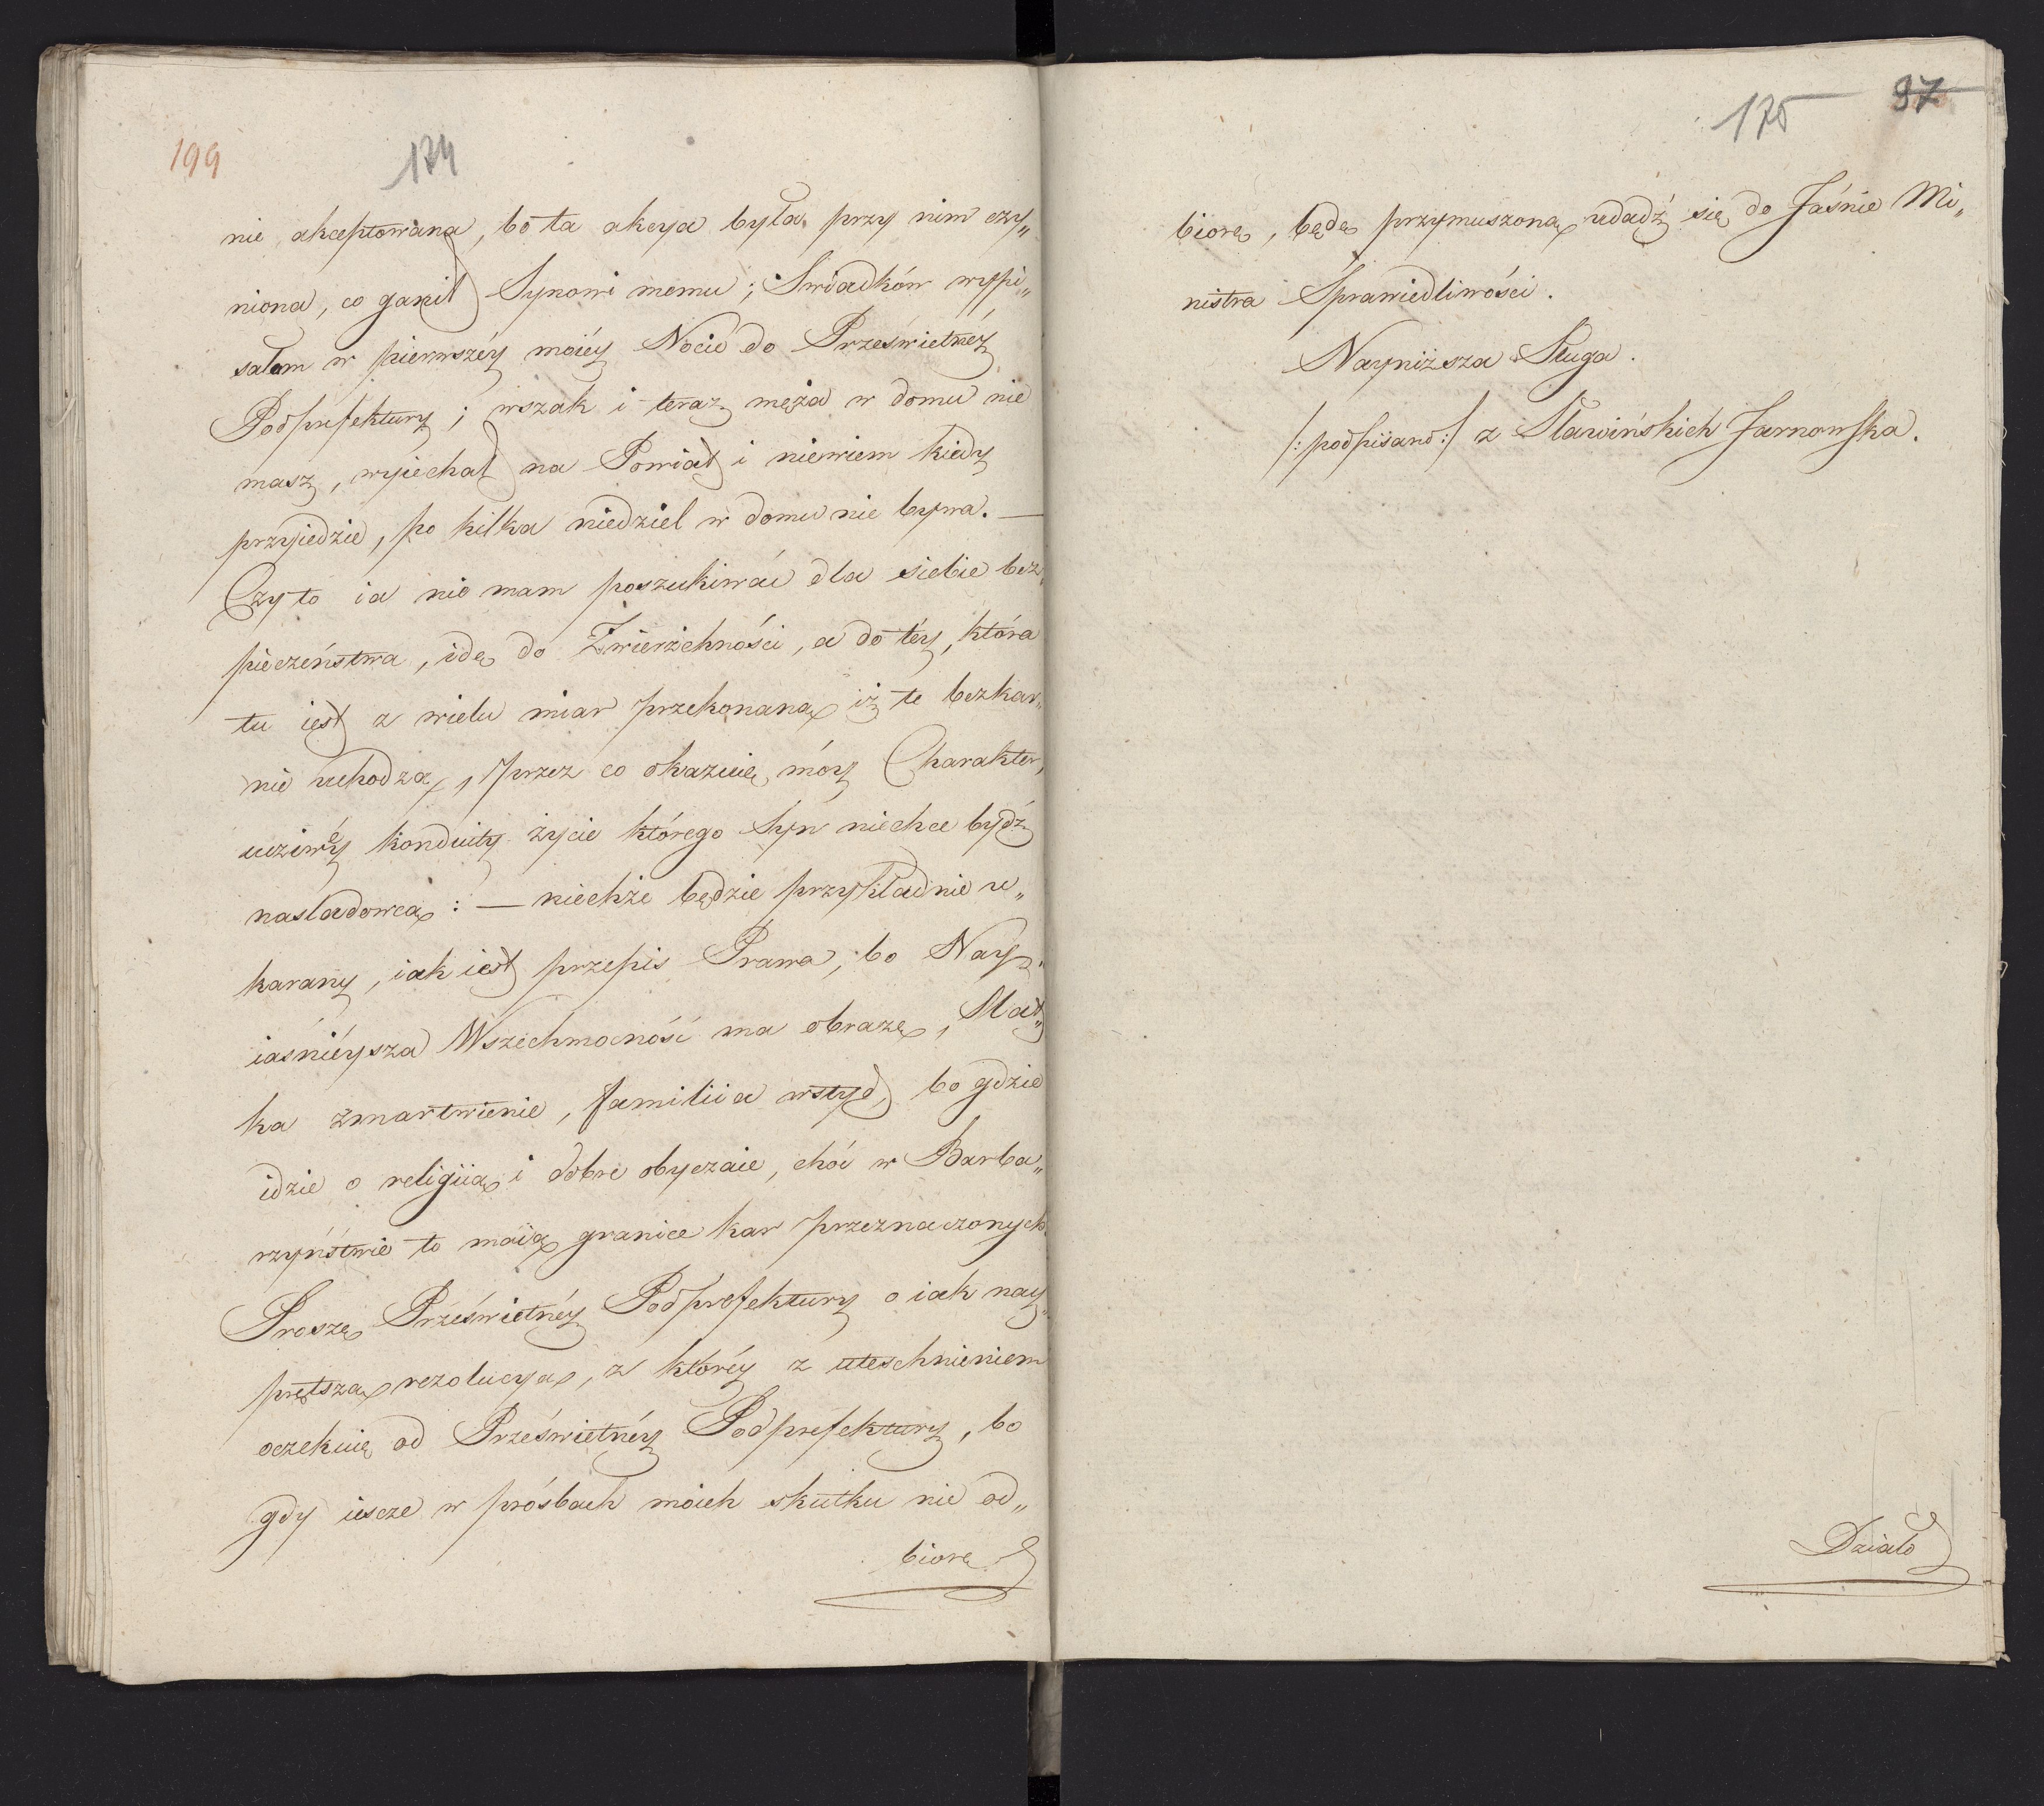 199
174
nie akceptowana, bo ta akcya była przy nim czy„
niona, co ganił Synowi memu; Swiadków wypi„
sałam w pierwszéy moiéy Nocie do Prześwietnéy
Podprefektury; wszak i teraz męża w domu nie
masz, wyiechał na Powiat i niewiem kiedy
przyiedzie, po kilka niedziel w domu nie bywa. —
Czy to ia nie mam poszukiwać dla siebie bez„
pieczeństwa, idę do Zwierzchności, a do téy, która
tu iest z wielu miar przekonaną iż te bezkar„
nie uchodzą, przez co okazuię móy Charakter,
ucziwéy konduity życie którego Syn niechce bydź
nasladowcą: — niechże będzie przykładnie u„
karany, iak iest przepis Prawa, bo Nay„
iaśniéysza Wszechmocność ma obrazę, Mat„
ka zmartwienie, familiia wstyd, bo gdzie
idzie o religiią i dobre obyczaie, choć w Barba„
rzyństwie to maią granice kar przeznaczonych.
Proszę Prześwietnéy Podprefektury o iak nay„
prętszą rezolucyą, z któréy z utęschnieniem
oczekuię od Prześwietnéy Podprefektury, bo
gdy iescze w prósbach moich skutku nie od„
biorę
175
97
biorę, będę przymuszoną udadź się do Jaśnie Mi„
nistra Sprawiedliwości.
Nayniższa Sługa.
/: podpisano :/ z Sławińskich Jarnowska.
Działo